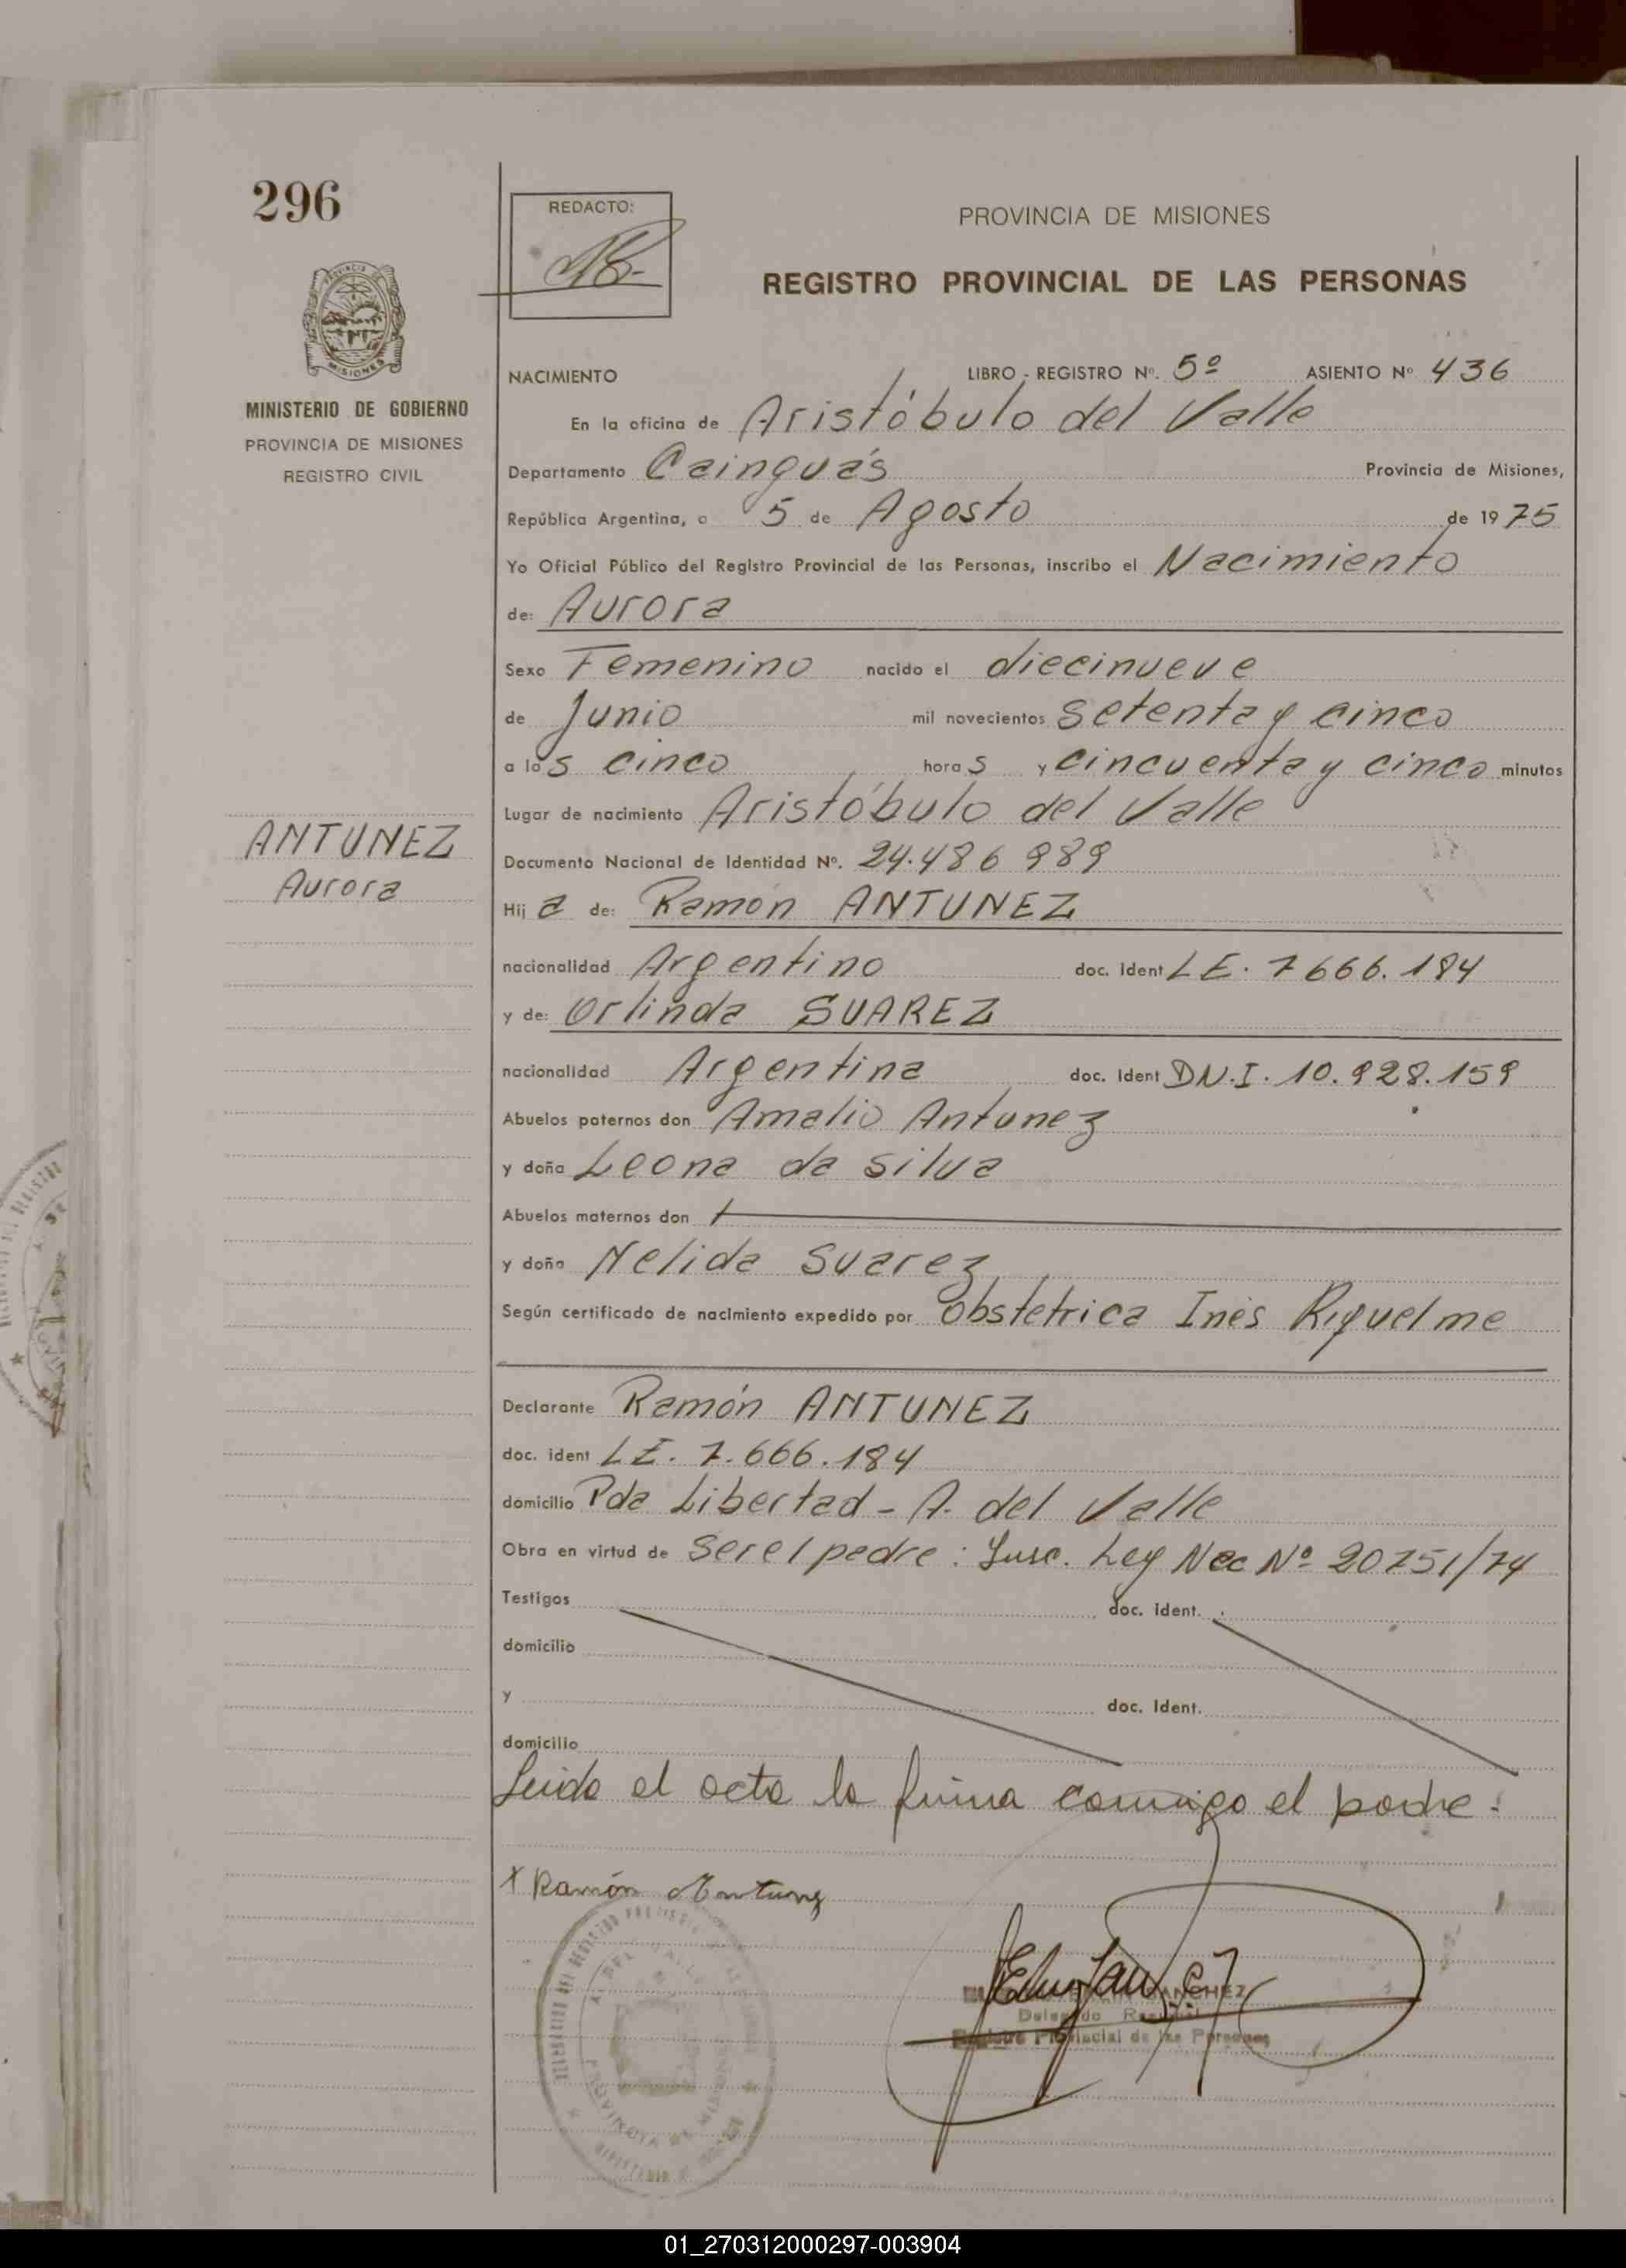 296
REDACTO:
PROVINCIA DE MISIONES
REGISTRO PROVINCIAL DE LAS PERSONAS
MISIONES
MINISTERIO DE GOBIERNO
PROVINCIA DE MISIONES
REGISTRO CIVIL
NACIMIENTO LIBRO - REGISTRO Nº. 5º ASIENTO Nº 436
En la oficina de Aristóbulo del Valle
Departamento Cainguás Provincia de Misiones,
República Argentina, a 5 de Agosto de 1975
Yo Oficial Público del Registro Provincial de las Personas, inscribo el Nacimiento
de: Aurora
Sexo Femenino nacido el diecinueve
de Junio mil novecientos setenta y cinco
a las cinco horas y cincuenta y cinco minutos
Lugar de nacimiento Aristóbulo del Valle
ANTUNEZ
Aurora
Documento Nacional de Identidad Nº. 24.486 989
Hija de: Ramón ANTUNEZ
nacionalidad Argentino doc. Ident LE. 7666.184
y de: Orlinda SUAREZ
nacionalidad Argentina doc. Ident DN.I. 10.928.159
Abuelos paternos don Amalio Antunez
y doña Leona da Silva
Abuelos maternos don
y doña Nelida Suarez
Según certificado de nacimiento expedido por Obstetrica Inés Riquelme
Declarante Ramón ANTUNEZ
doc. ident LE. 7.666.184
domicilio Pda Libertad - A. del Valle
Obra en virtud de Ser el padre: Insc. Ley Nac Nº 20751/74
Testigos doc. ident.
domicilio
y doc. Ident.
domicilio
Leida el acta la firma conmigo el padre.
x Ramón Antunez
SANCHEZ
Delegado
Provincial de las Personas
01_270312000297-003904